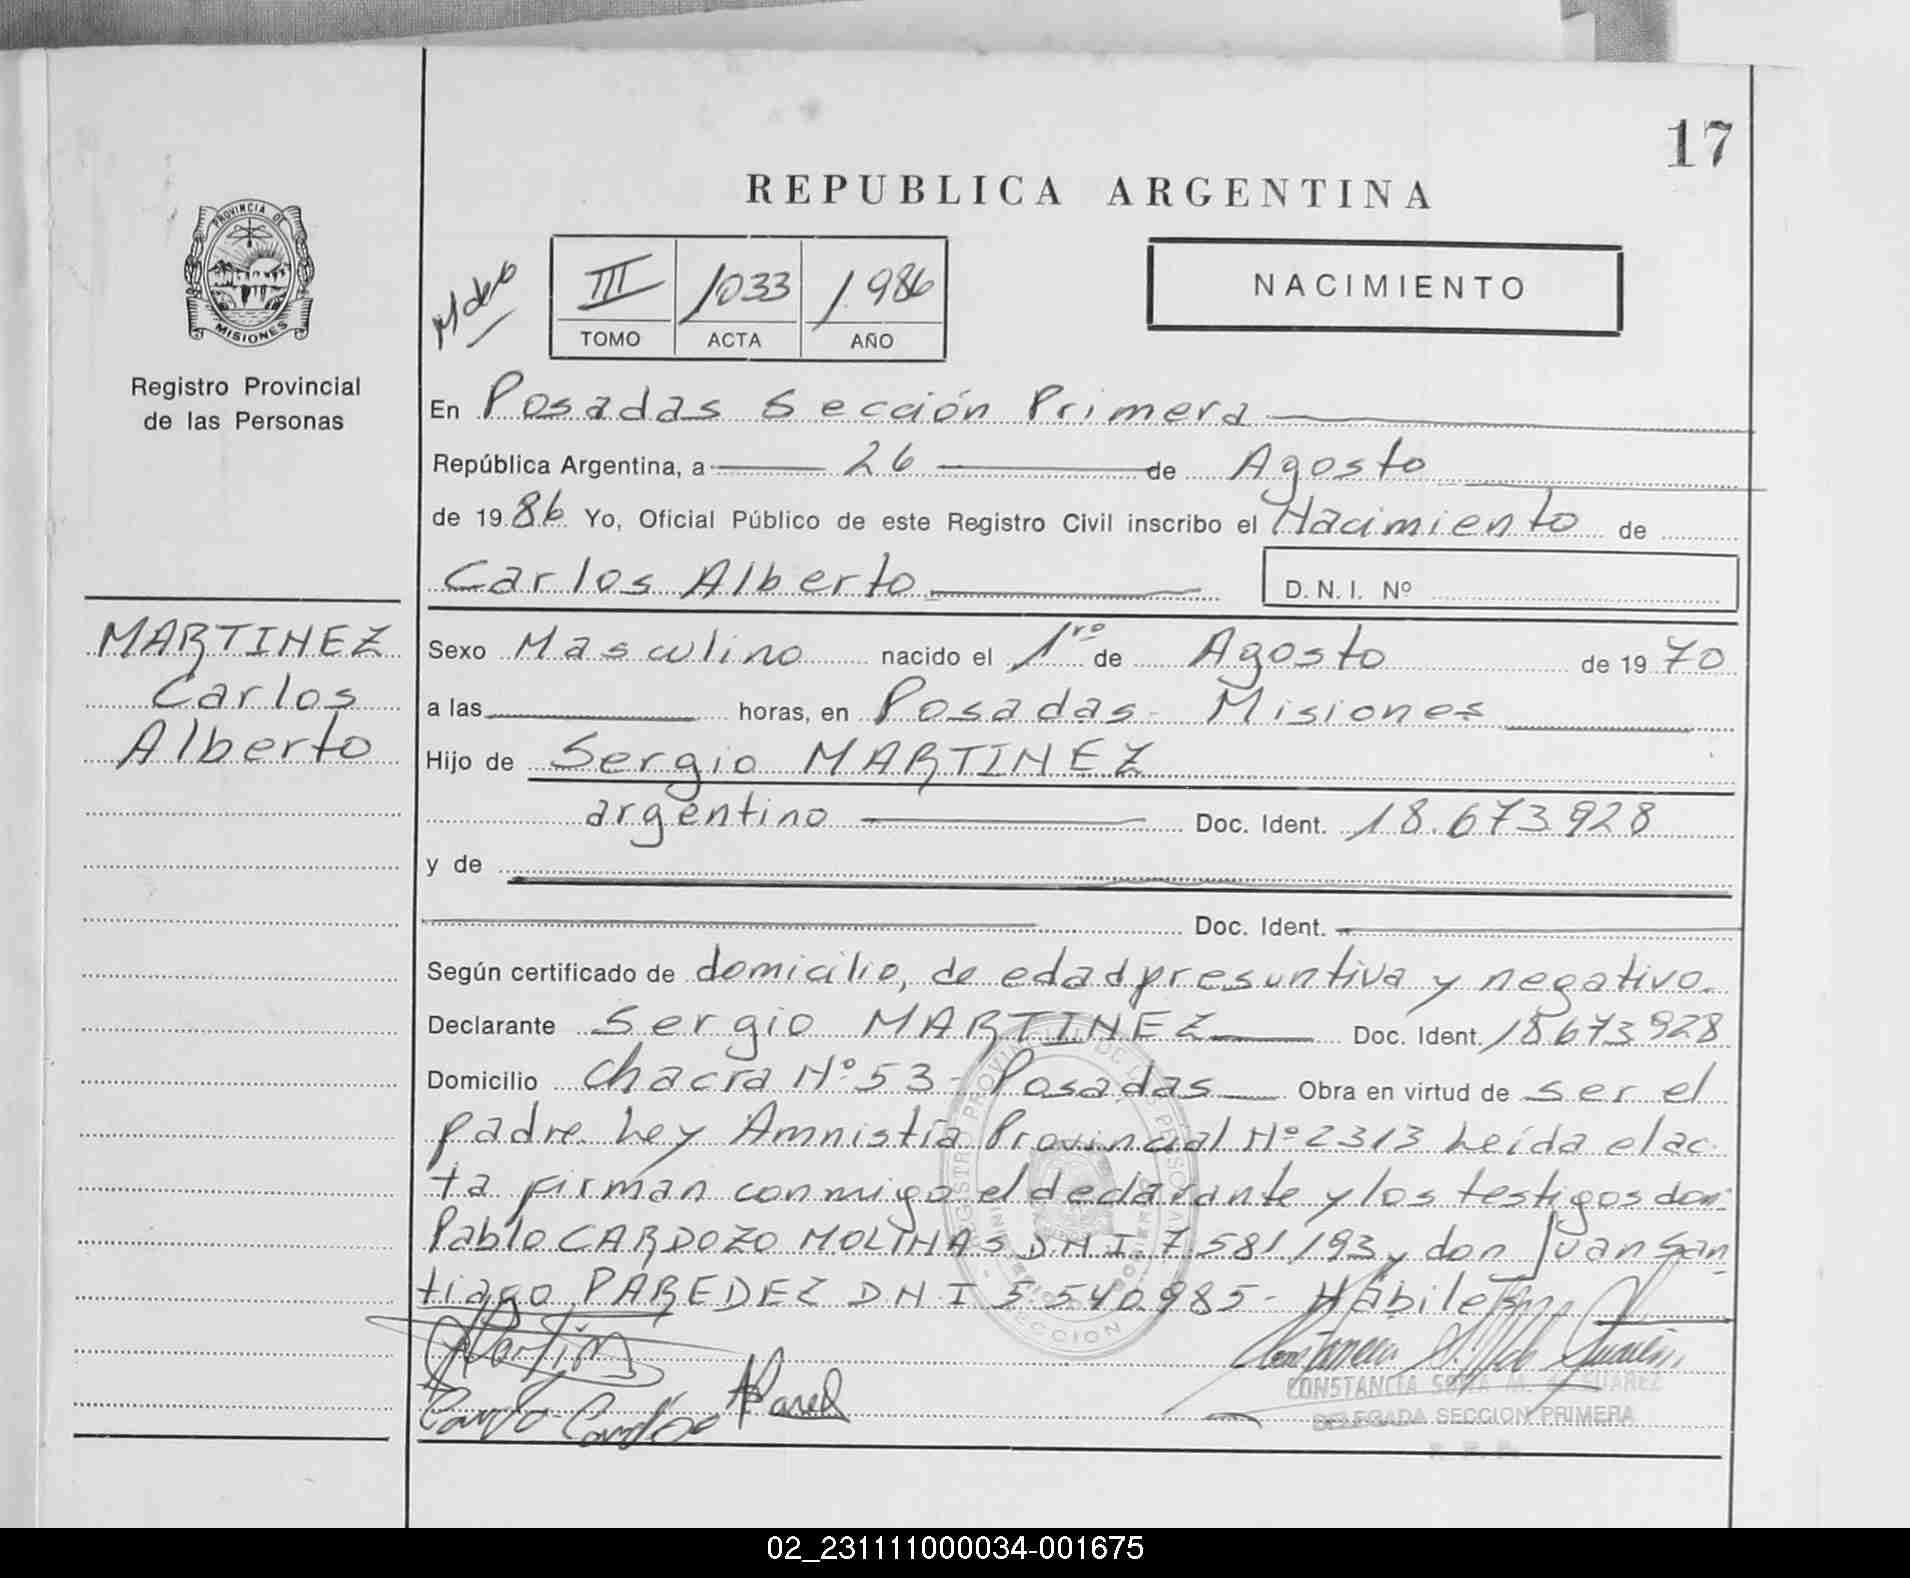 17
REPUBLICA ARGENTINA
PROVINCIA DE
MISIONES
Registro Provincial
de las Personas
III 1033 1.986
TOMO ACTA AÑO
NACIMIENTO
En Posadas Sección Primera
República Argentina, a 26 de Agosto
de 1986 Yo, Oficial Público de este Registro Civil inscribo el Nacimiento de
Carlos Alberto
D. N. I. Nº
MARTINEZ
Carlos
Alberto
Sexo Masculino nacido el 1ro de Agosto de 1970
a las horas, en Posadas - Misiones
Hijo de Sergio MARTINEZ
argentino Doc. Ident. 18.673.928
y de
Doc. Ident.
Según certificado de domicilio, de edad presuntiva y negativo.
Declarante Sergio MARTINEZ Doc. Ident. 18.673.928
Domicilio Chacra Nº 53 - Posadas Obra en virtud de ser el
padre. Ley Amnistía Provincial Nº 2313 Leída el ac-
ta firman conmigo el declarante y los testigos don
Pablo CARDOZO MOLINAS D.N.I. 7.581.193 y don Juan San
tiago PAREDEZ D N I 5.540.985 - Hábiles
CONSTANCIA M. DE SUAREZ
DELEGADA SECCION PRIMERA
02_231111000034-001675